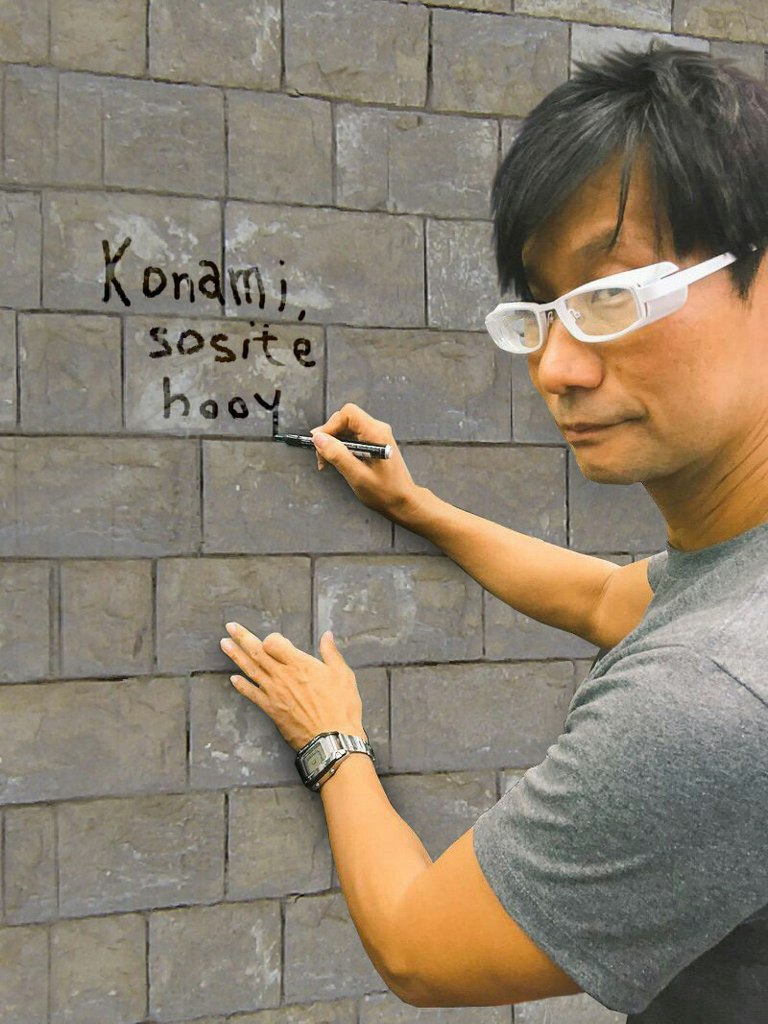 Konami,
sosite
hooy